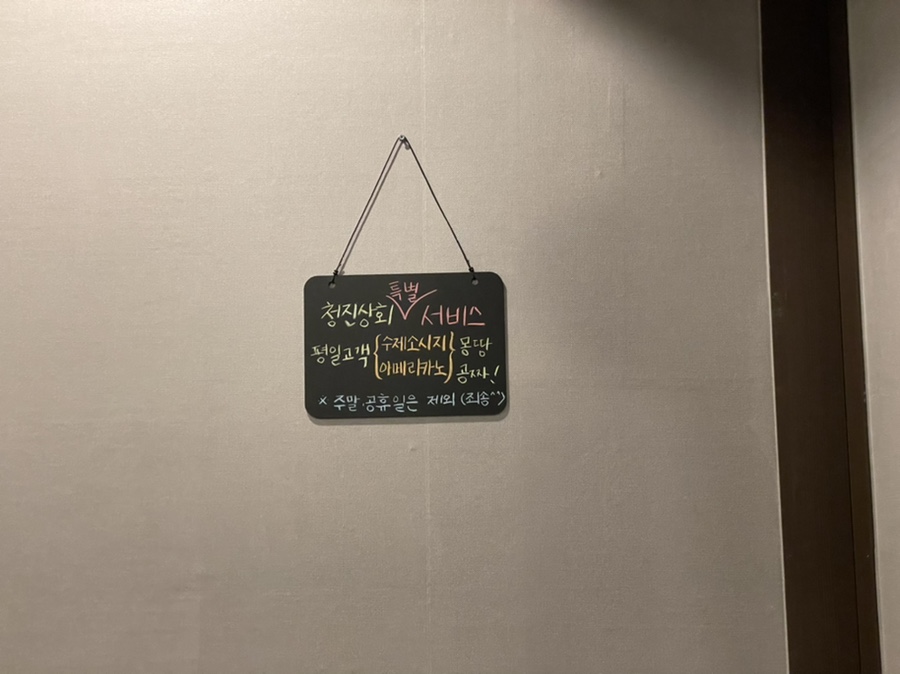 청진상회 특별 서비스
평일고객 {수제소시지 아메리카노} 몽땅 공짜!
× 주말.공휴일은 제외 (죄송^^)